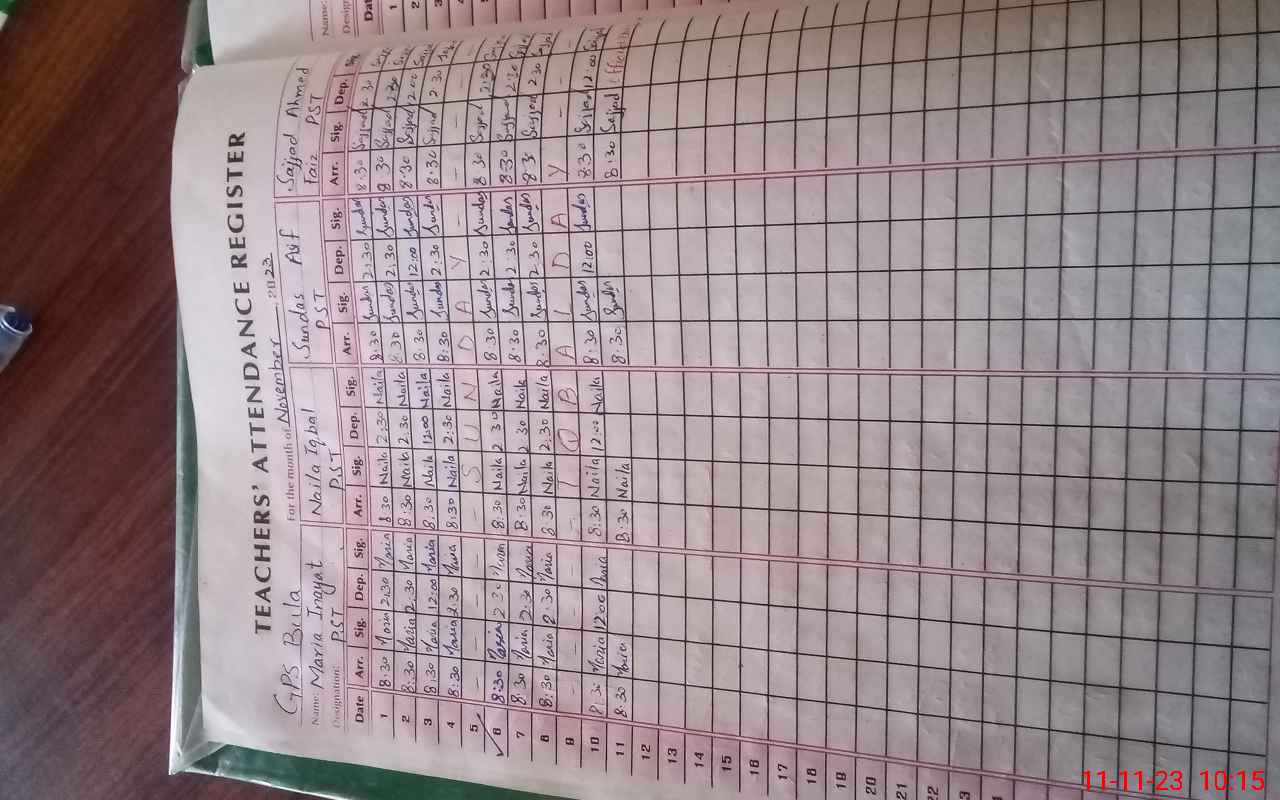 TEACHERS' ATTENDANCE REGISTER
GPS Bula For the month of November 2023
Name: Maria Inayat Naila Iqbal Sundas Asif Sajjad Ahmed Faiz
Designation: PST PST PST PST
Date Arr. Sig. Dep. Sig. Arr. Sig. Dep. Sig. Arr. Sig. Dep. Sig. Arr. Sig. Dep. Sig.
1 8:30 Maria 2:30 Maria 8:30 Naila 2:30 Naila 8:30 Sundas 2:30 Sundas 8:30 Sajjad 2:30
2 8:30 Maria 2:30 Maria 8:30 Naila 2:30 Naila 8:30 Sundas 2:30 Sundas 8:30 Sajjad 2:30
3 8:30 Maria 12:00 Maria 8:30 Naila 12:00 Naila 8:30 Sundas 12:00 Sundas 8:30 Sajjad 12:00
4 8:30 Maria 2:30 Maria 8:30 Naila 2:30 Naila 8:30 Sundas 2:30 Sundas 8:30 Sajjad 2:30
5 - - - - - S U N D A Y - - - - -
6 8:30 Maria 2:30 Maria 8:30 Naila 2:30 Naila 8:30 Sundas 2:30 Sundas 8:30 Sajjad 2:30
7 8:30 Maria 2:30 Maria 8:30 Naila 2:30 Naila 8:30 Sundas 2:30 Sundas 8:30 Sajjad 2:30
8 8:30 Maria 2:30 Maria 8:30 Naila 2:30 Naila 8:30 Sundas 2:30 Sundas 8:30 Sajjad 2:30
9 - - - - - I Q B A L D A Y - - -
10 8:30 Maria 12:00 Maria 8:30 Naila 12:00 Naila 8:30 Sundas 12:00 Sundas 8:30 Sajjad 12:00
11 8:30 Maria 8:30 Naila 8:30 Sundas 8:30 Sajjad
12
13
14
15
16
17
18
19
20
21
22
Name:
Date
1
2
3
11-11-23 10:15